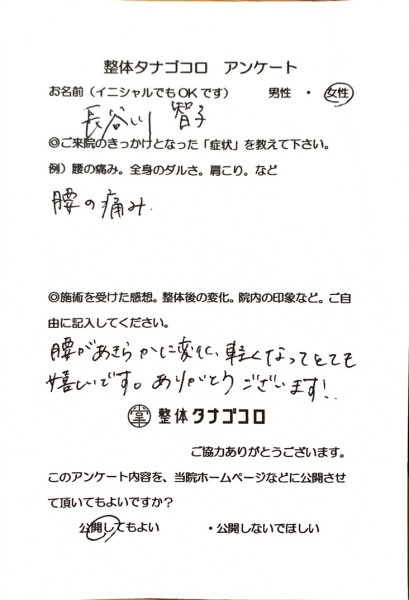 整体タナゴコロ アンケート
お名前（イニシャルでもOKです） 男性 ・ 女性
長谷川 智子
◎ご来院のきっかけとなった「症状」を教えて下さい。
例）腰の痛み。全身のダルさ。肩こり。など
腰の痛み.
◎施術を受けた感想。整体後の変化。院内の印象など。ご自
由に記入してください。
腰があきらかに変化、軽くなってとても
嬉しいです。ありがとうございます!.
掌 整体タナゴコロ
ご協力ありがとうございます。
このアンケート内容を、当院ホームページなどに公開させ
て頂いてもよいですか？
公開してもよい ・公開しないでほしい